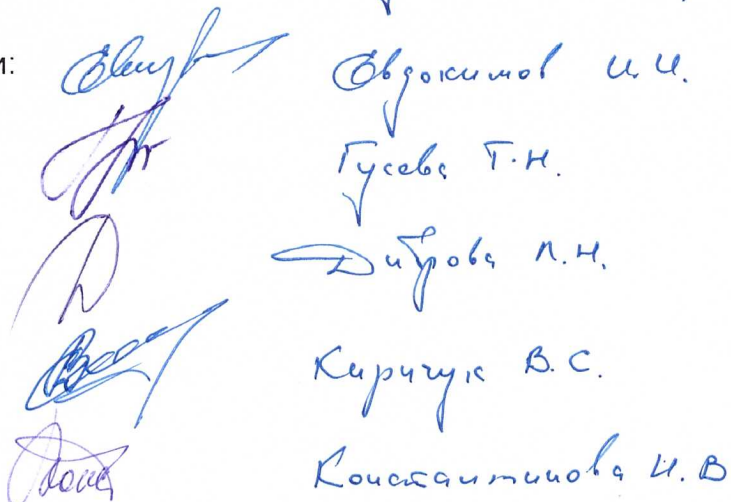 и:
Евдокимов И.И.
Гусева Т.Н.
Дитрова Л.Н.
Киричук В.С.
Константинова И.В